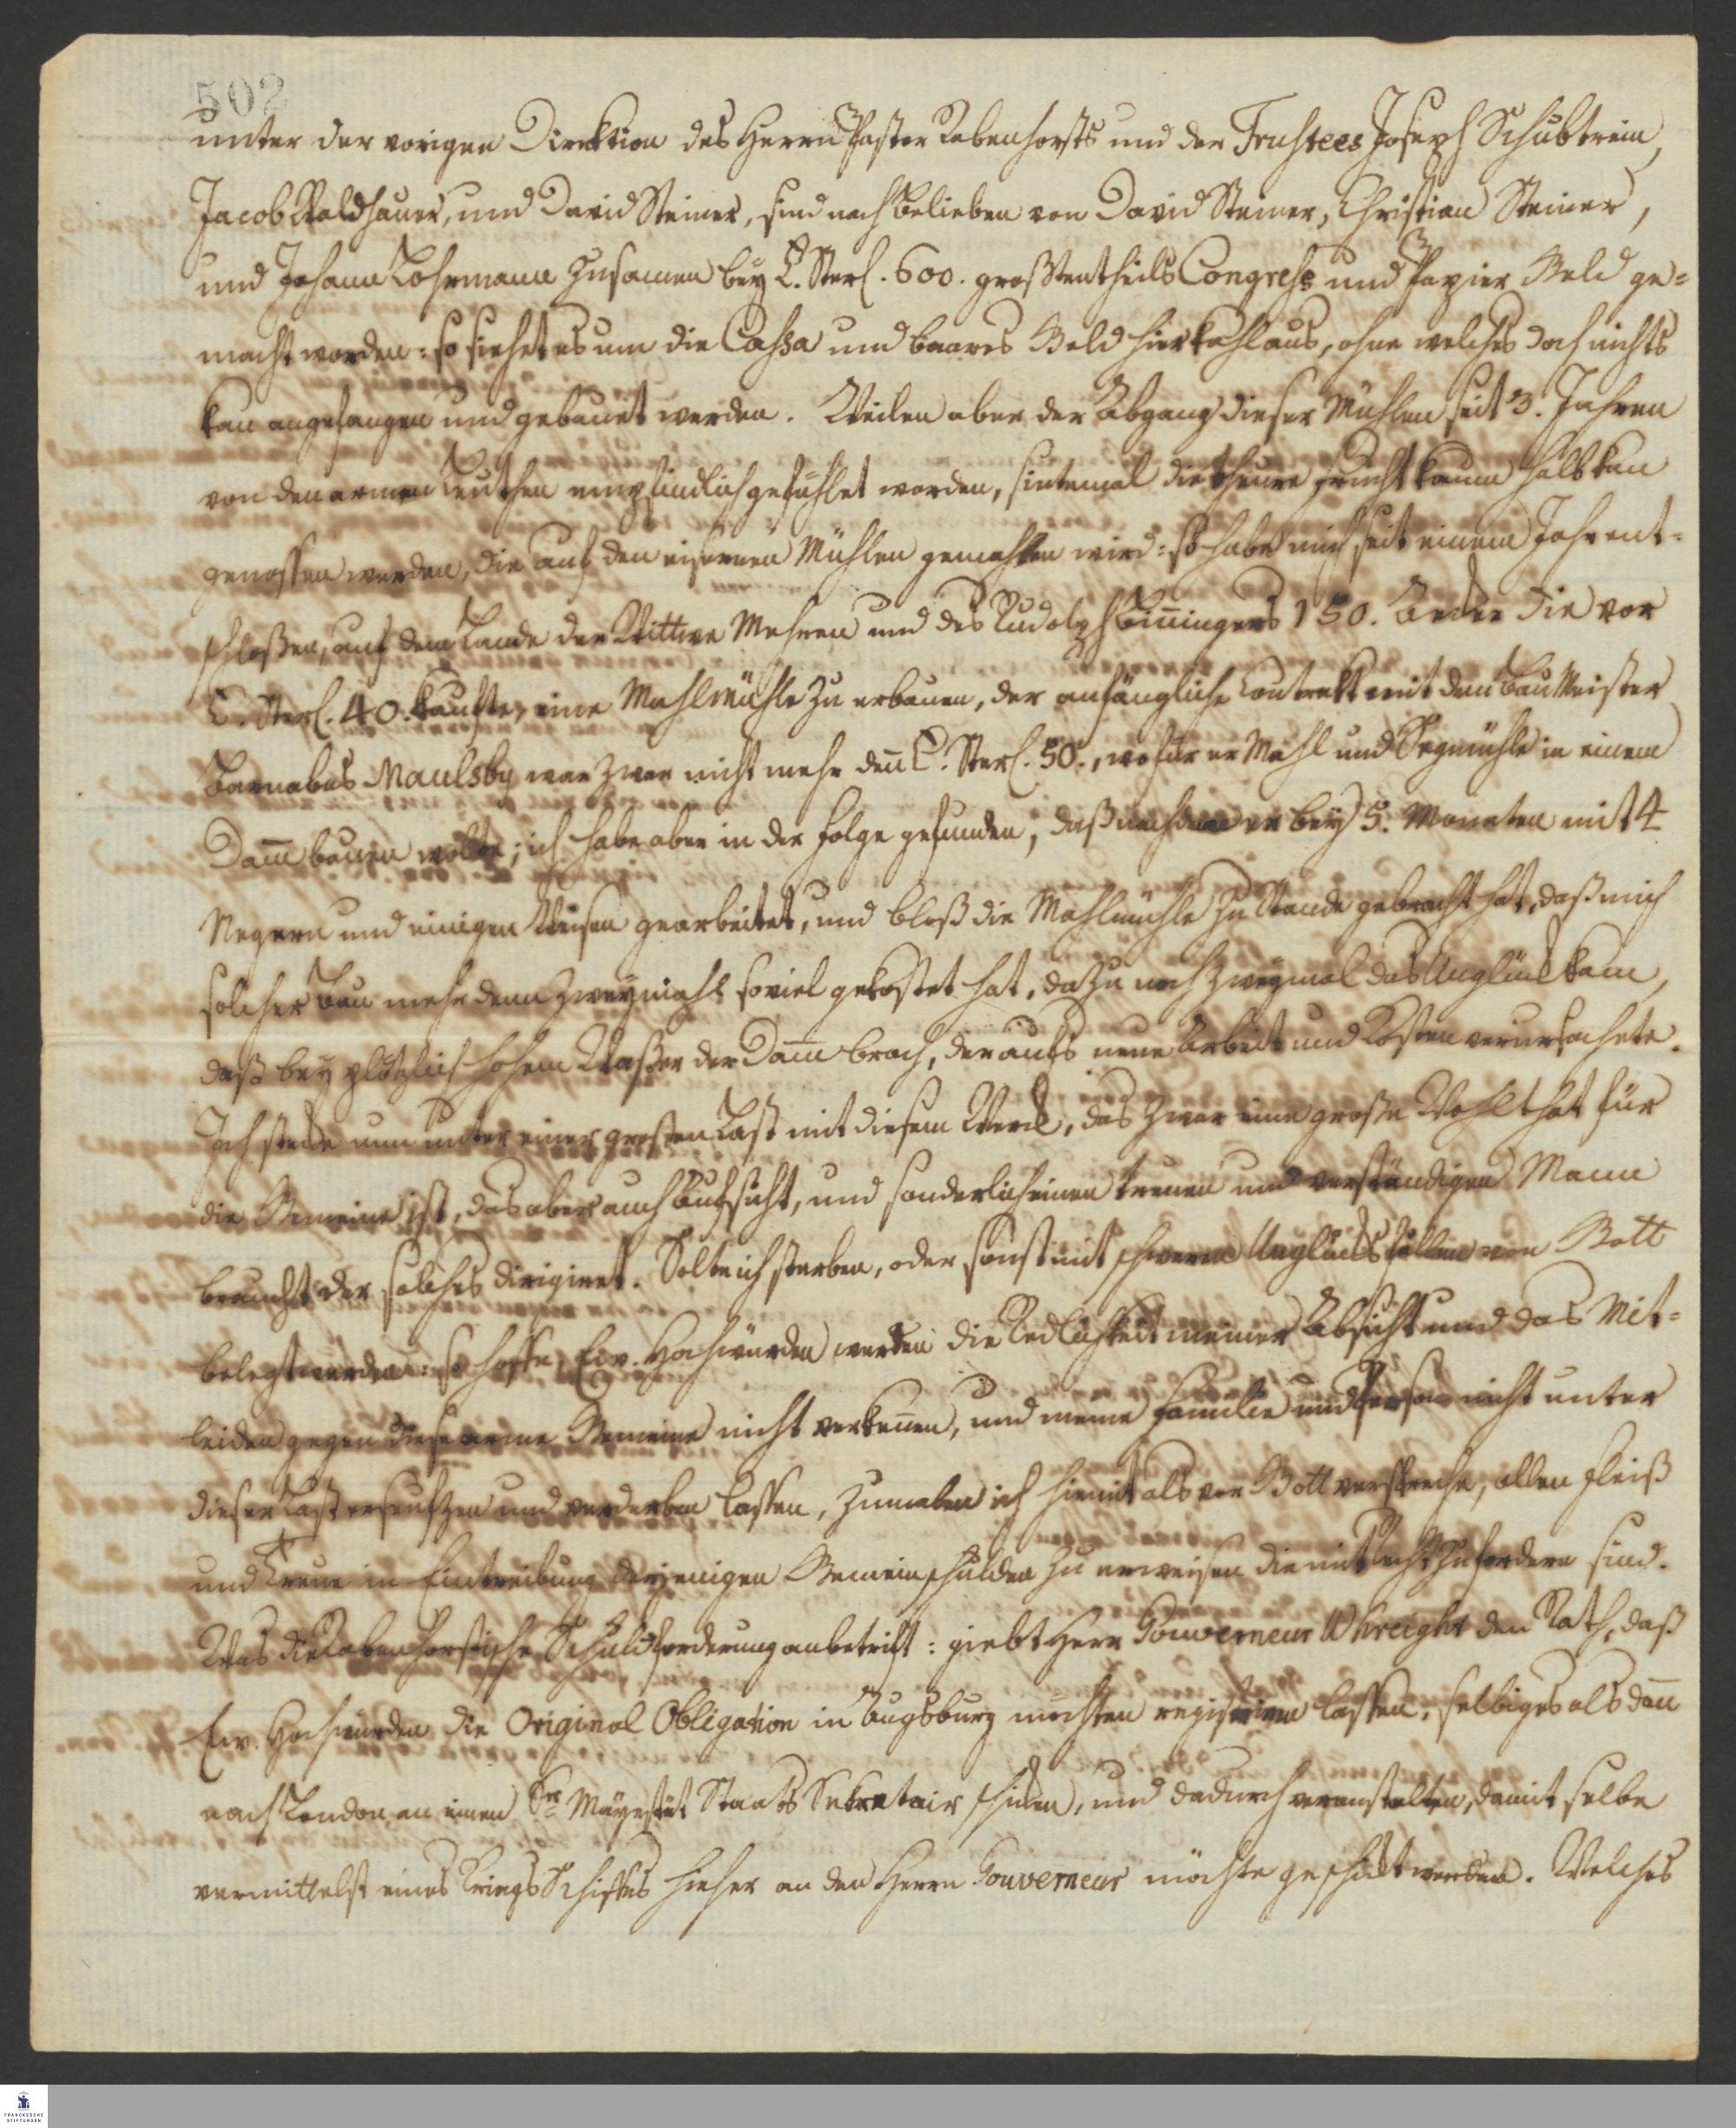 502
unter der vorigen Direktion des Herrn Pastor Rabenhorsts und der Trustees Joseph Schubtrein,
Jacob Waldhauer, und David Steiner, sind nach Belieben von David Steiner, Christian Steiner,
und Johann Lohrmann zusamen bey L. Sterl. 600. großtentheils Congress und Papier Geld ge=
macht worden: so siehet es um die Cassa und baares Geld hier kahl aus, ohne welches doch nichts
kan angefangen und gebauet werden. Weilen aber der Abgang dieser Mühlen seit 3. Jahren
von den armen Leuthen empfindlich gefühlet worden, sintemal die theure Frucht kaum halb kan
genossen werden, die auf den eisernen Mühlen gemahlen wird: so habe mich seit einem Jahr ent=
schloßen, auf dem Lande der Wittwe Mehren und des Rudolph Biñingers 150. Acker die vor
L. Sterl. 40. kaufte, eine Mahlmühle zu erbauen, der anfängliche Contrakt mit dem Bau Meister
Barnabas Maulsby war zwar nicht mehr deñ L. Sterl. 50., wofür er Mahl und Segmühle in einem
Dam̄ bauen wollte; ich habe aber in der Folge gefunden, daß nachdem er bey 5. Monaten mit 4
Negern und einigen Weisen gearbeitet, und bloß die Mahlmühle zu Stande gebracht hat, daß mich
solcher Bau mehr denn zweymahl soviel gekostet hat, dazu noch zweymal das Unglück kam,
daß bey plötzlich hohem Waßer der Dam̄ brach, der aufs neue Arbeit und Kosten verursachete.
Ich stecke nun unter einer großen Last mit diesem Werck, das zwar eine große Wohlthat für
die Gemeine ist, das aber auch Aufsicht, und sonderlich einen treuen und verständigen Mann
braucht der solches dirigiret. Solte ich sterben, oder sonst mit schweren Unglücksfällen von Gott
belegt werden: so hoffe, Ew. Hochwürden werden die Redlichkeit meiner Absicht und das Mit=
leiden gegen diese arme Gemeine nicht verkeñen, und meine Familie und Person nicht unter
dieser Last erseufzen und verderben lassen, zumalen ich hiemit als vor Gott verspreche, allen Fleiß
und Treue in Eintreibung derjenigen Gemeinschulden zu erweisen die mit Recht zu fordern sind.
Was die Rabenhorstische Schuldforderung anbetrift: giebt Herr Gouverneur Whreight den Rath, daß
Ew. Hochwürden die Original Obligation in Augsburg möchten registriren lassen, selbiges als dañ
nach London an einen Sr. Mayestät Staats Sekretair schicken, und dadurch veranstalten, damit selbe
vermittelst eines Kriegs Schiffes hieher an den Herrn Gouverneur möchte geschickt werden. Welches
FRANCKESCHE
STIFTUNGEN